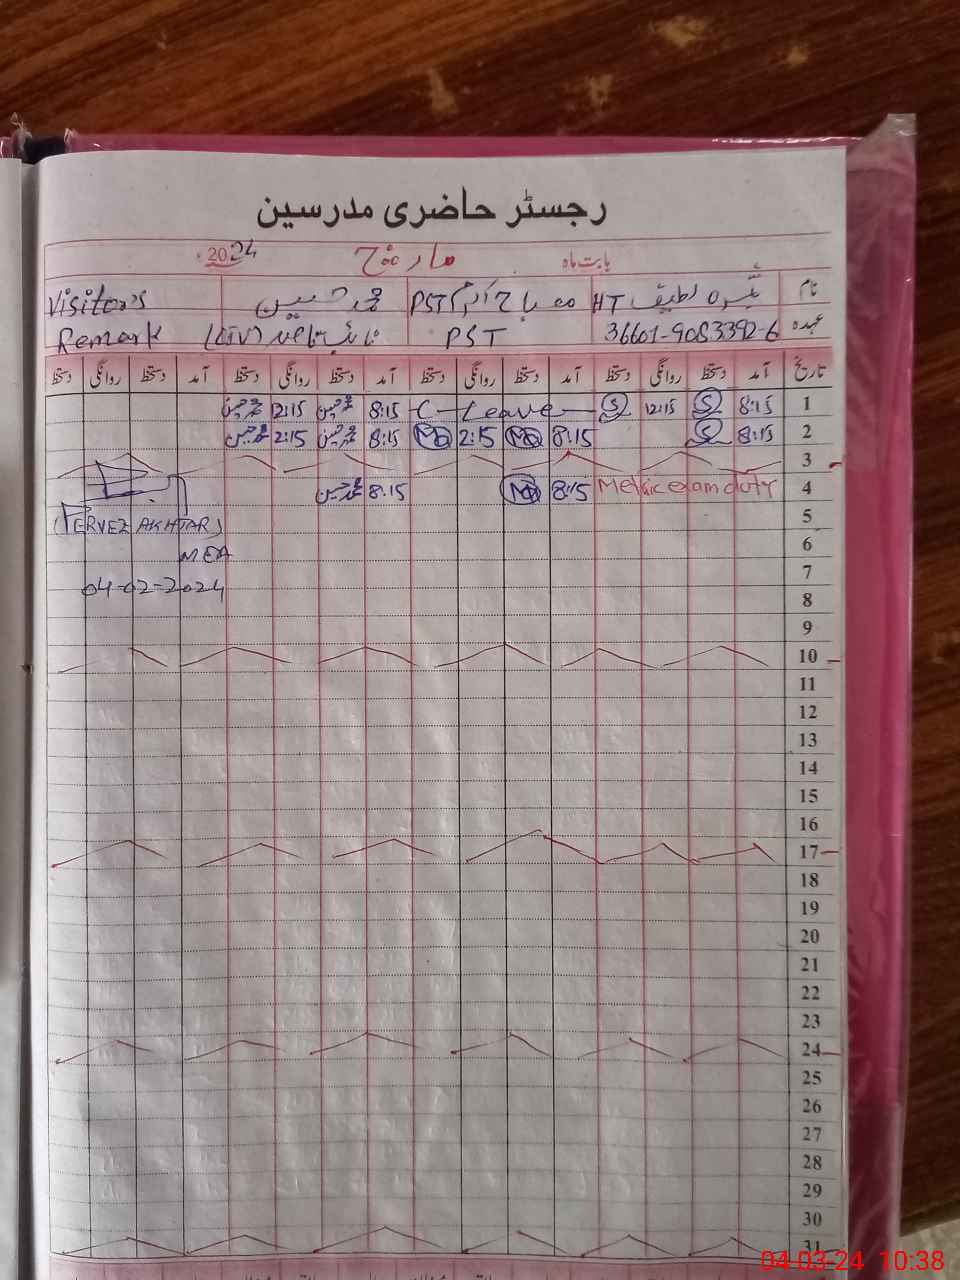 رجسٹر حاضری مدرسین
بابت ماہ مارچ 2024ء
نام HT PST محمد حسین Visitor's
عہدہ 36601-9083392-6 PST Remark
تاریخ آمد دستخط روانگی دستخط آمد دستخط روانگی دستخط آمد دستخط روانگی دستخط آمد دستخط روانگی دستخط
1 8:15 S 12:15 S C-Leave 8:15 محمد حسین 12:15 محمد حسین
2 8:15 S 8:15 2:15 8:15 محمد حسین 2:15 محمد حسین
3
4 Metric exam duty 8:15 8:15 محمد حسین
5 (PERVEZ AKHTAR)
6 MEA
7 04-02-2024
8
9
10
11
12
13
14
15
16
17
18
19
20
21
22
23
24
25
26
27
28
29
30
31
04-03-24 10:38